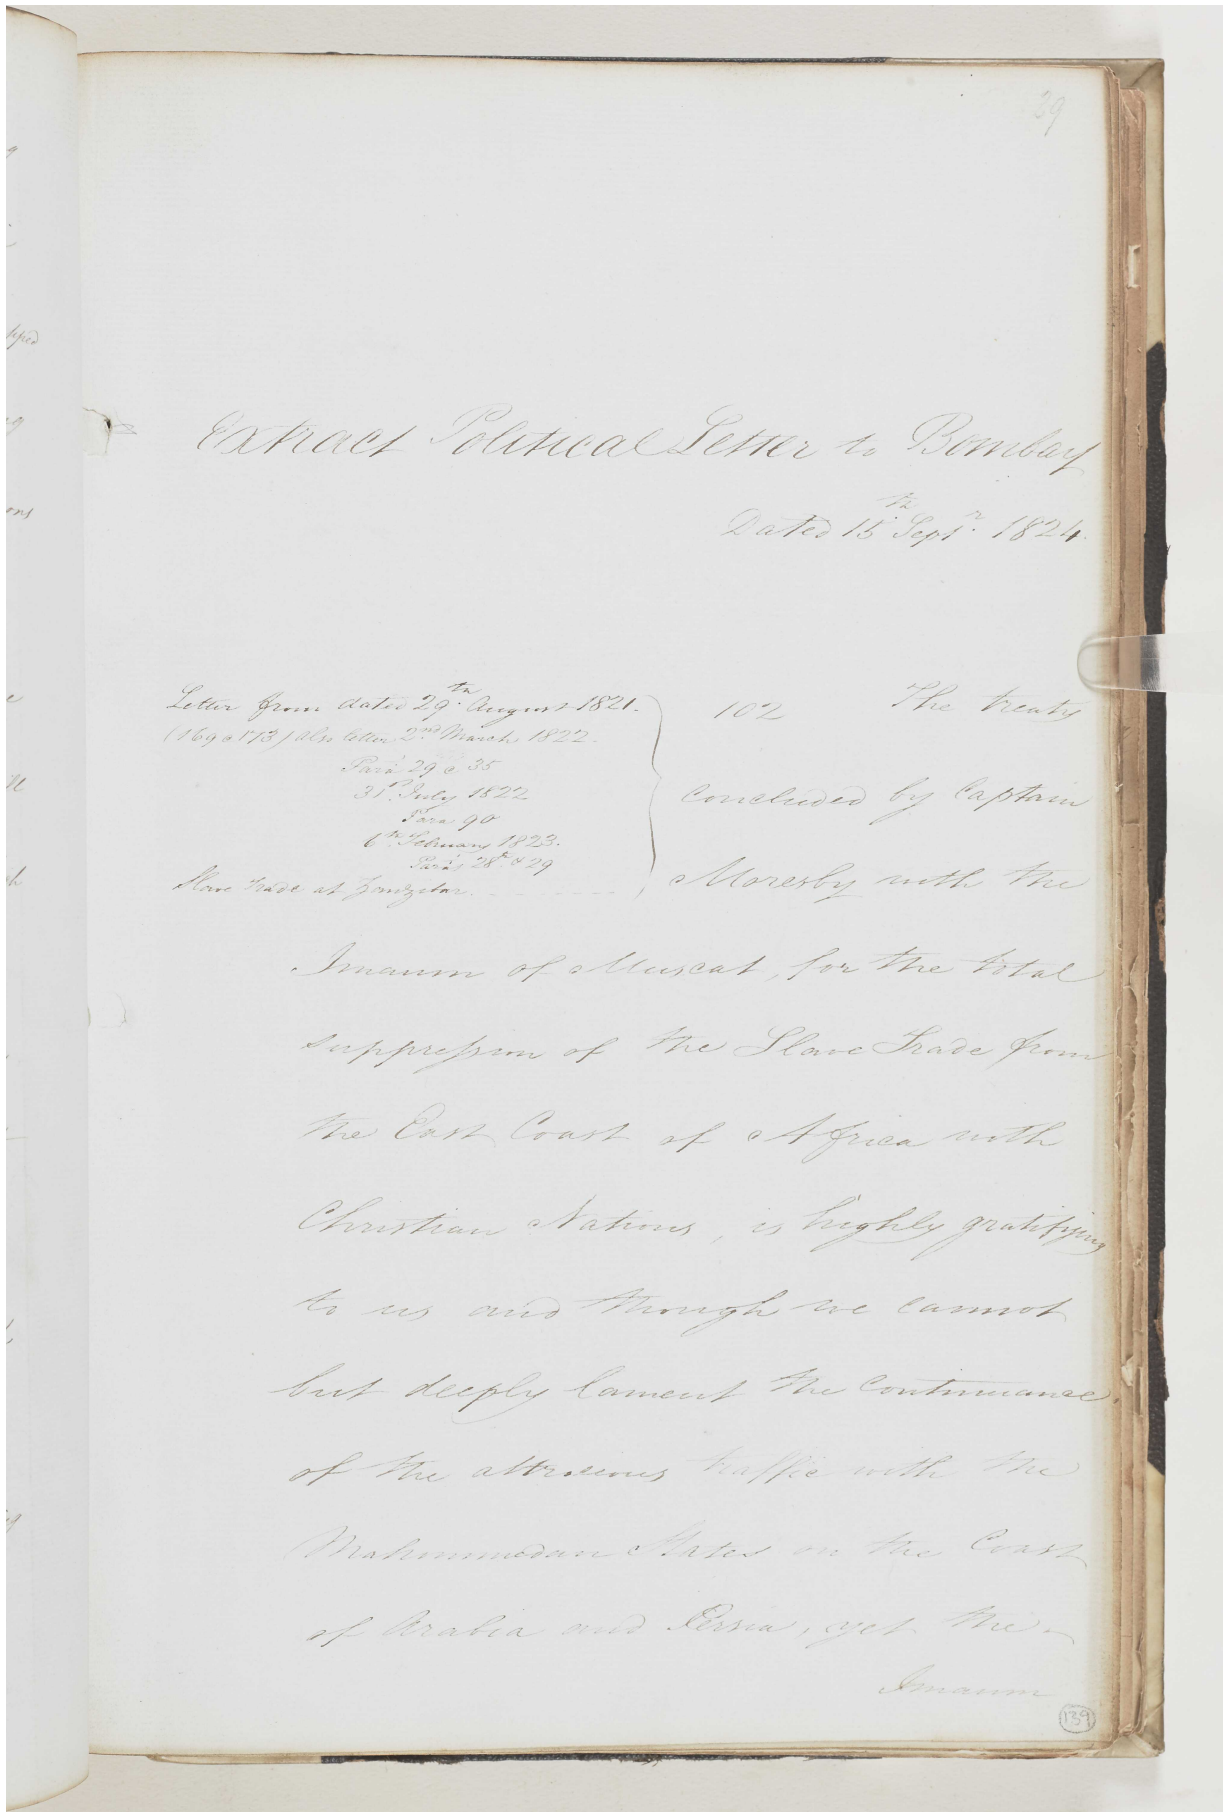 29
Extract Political Letter to Bombay
Dated 15th Septr. 1824.
Letter from dated 29th August 1821.
(169 @ 173) also letter 2nd March 1822.
Para 29 @ 35
31st July 1822
Para 90
6th February 1823.
Paras 28 & 29
Slave Trade at Zanzibar.
102 The treaty
concluded by Captain
Moresby with the
Imaum of Muscat, for the total
suppression of the Slave Trade from
the East Coast of Africa with
Christian Nations, is highly gratifying
to us and though we cannot
but deeply lament the continuance
of the attrocious traffic with the
Mahommedan States on the Coast
of Arabia and Persia, yet the
Imaum
139